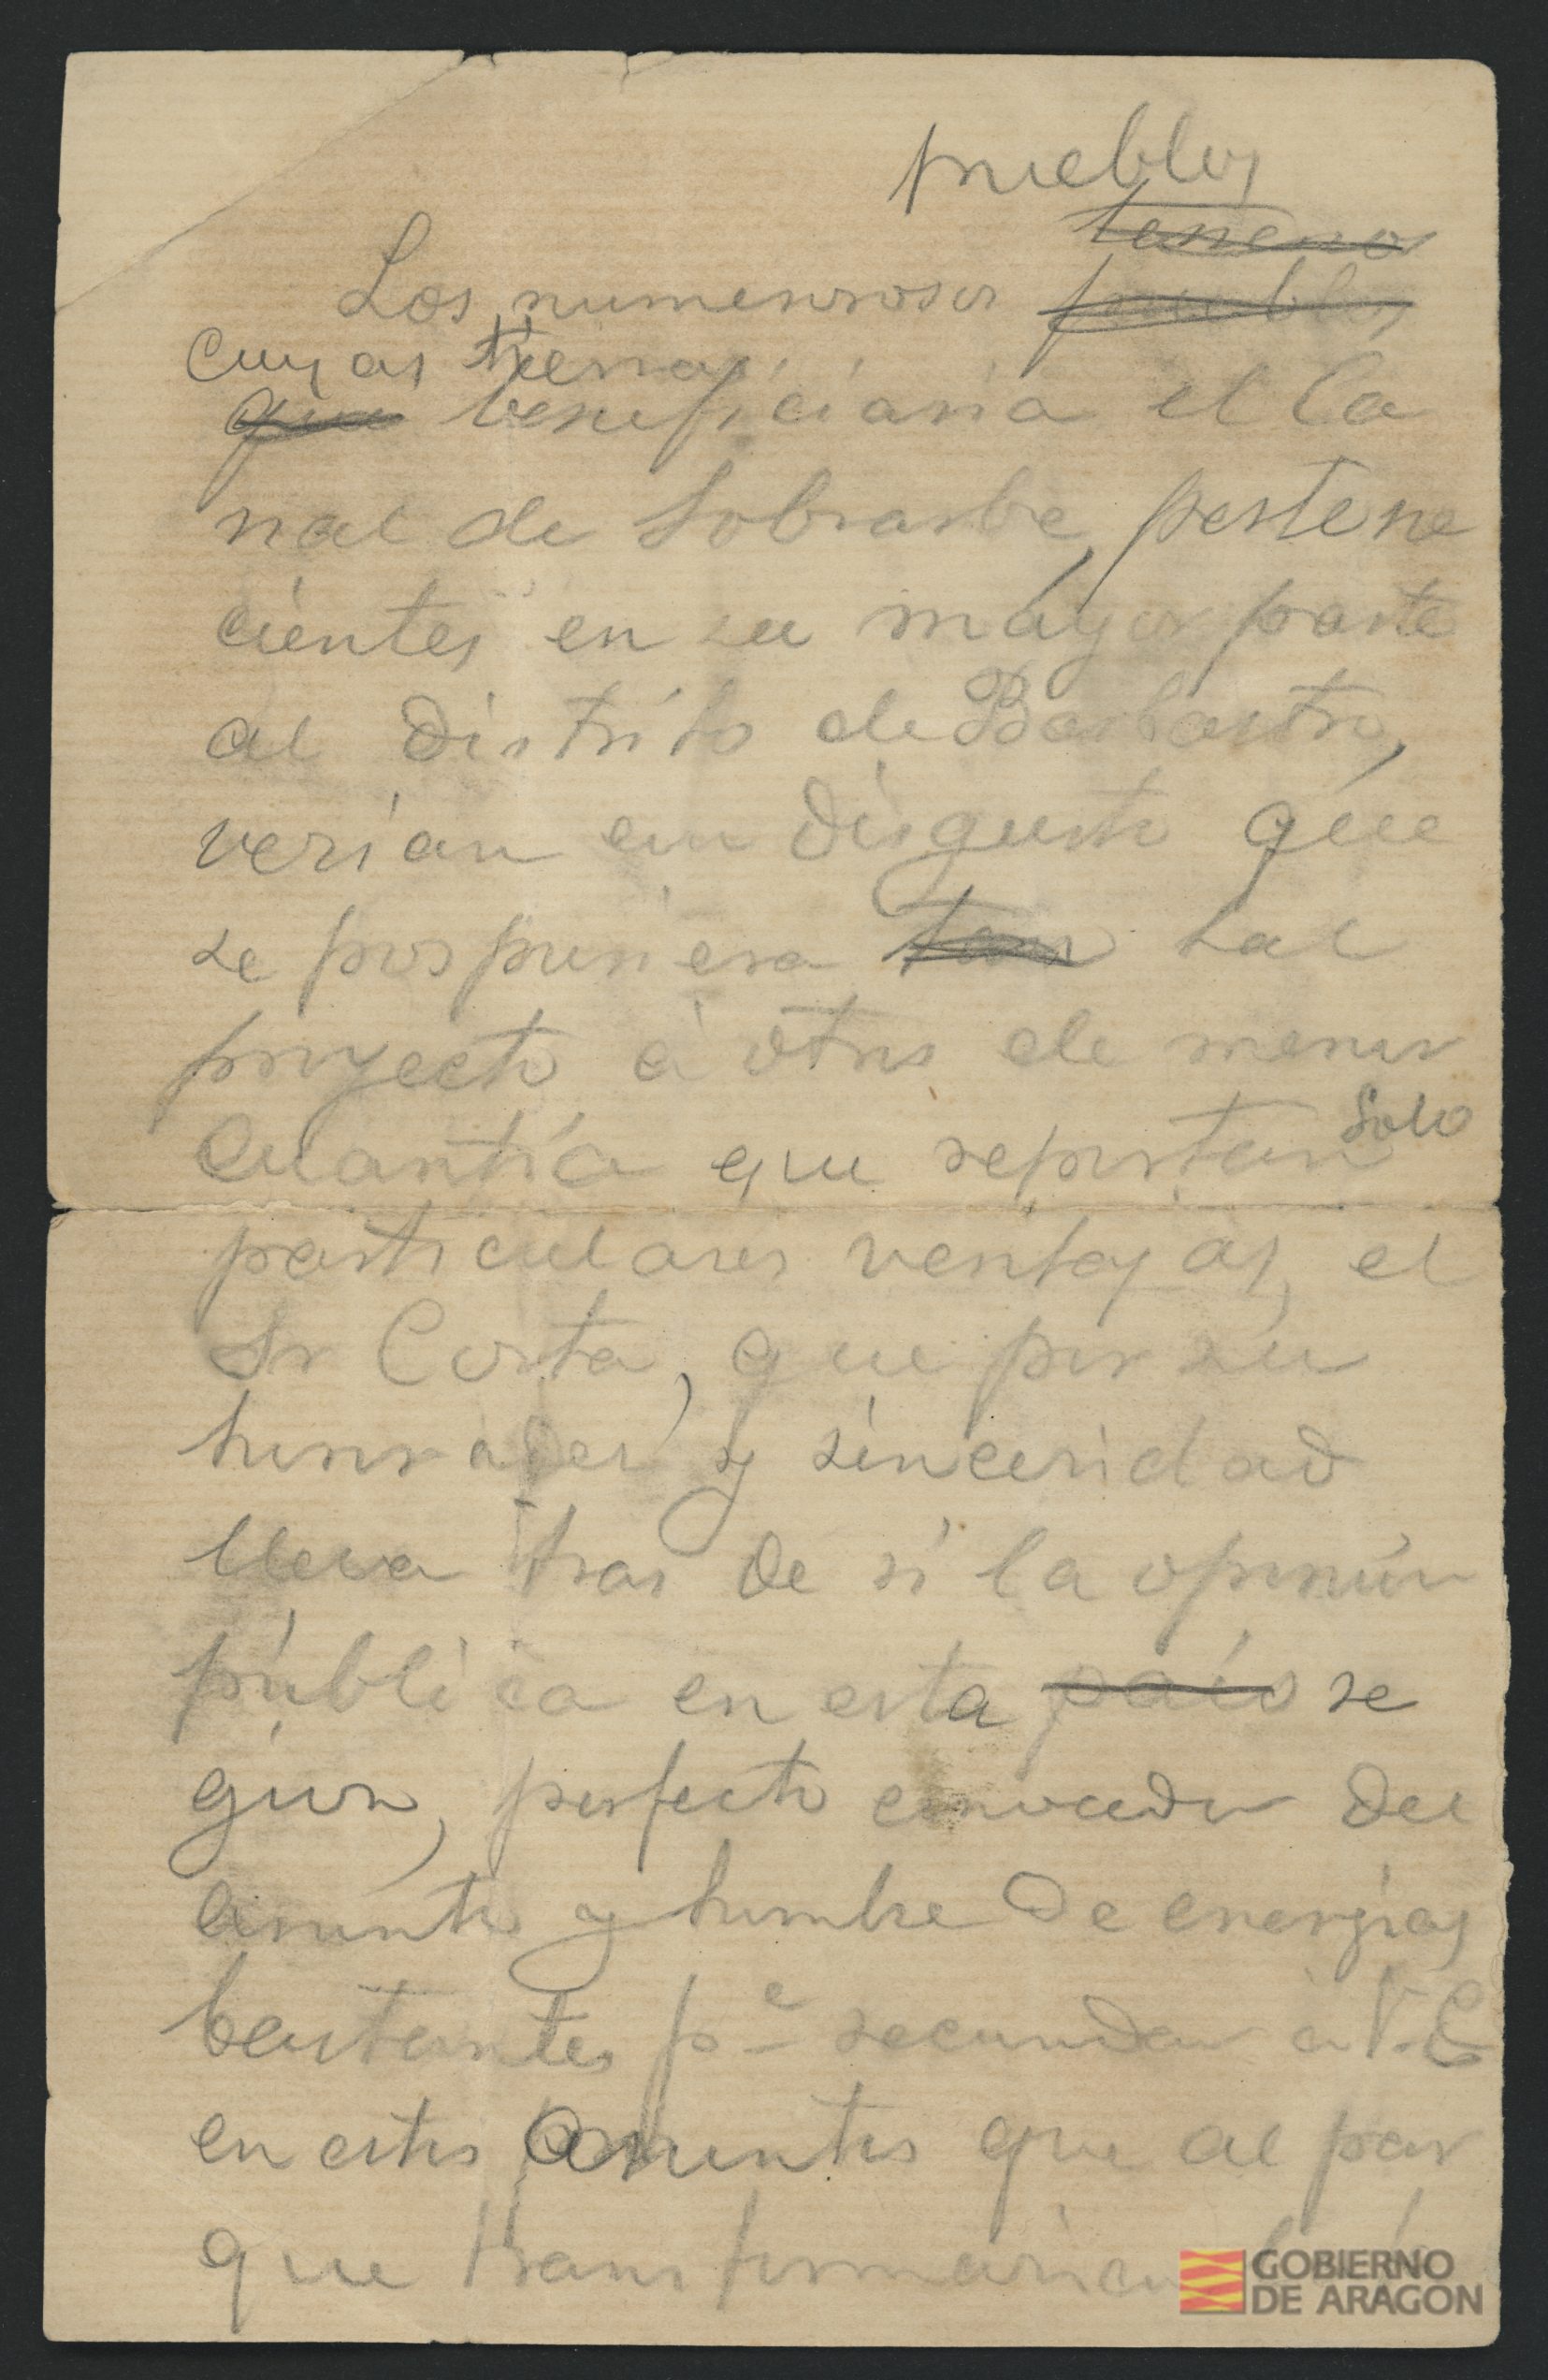 pueblos
terrenos
Los numerosos pueblos
cuyas tierras
que beneficiaria el Ca
nal de Sobrarbe, pertene
cientes en su mayor parte
al distrito de Barbastro,
verian con disgusto que
se pospusiera tan tal
proyecto á otros de menor
Cuantía que reportan solo
particulares ventajas, el
Sr Costa, que por su
honradez y sinceridad
lleva tras de sí la opinión
pública en esta país re
gion, perfecto conocedor del
asunto y hombre de energías
bastantes pª secundar á V.E
en estos asuntos que al par
que transformarian
GOBIERNO
DE ARAGON